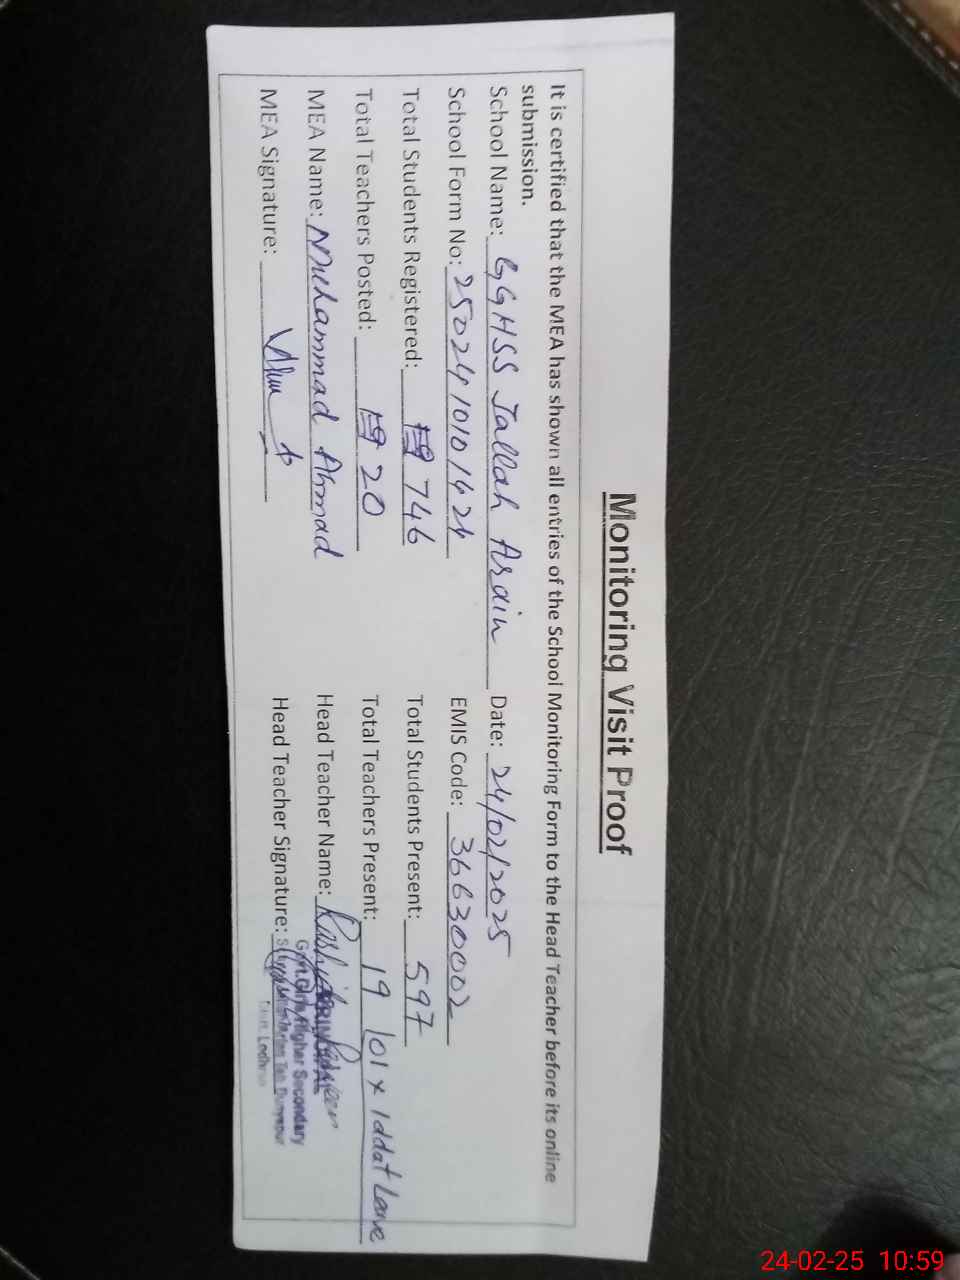 Monitoring Visit Proof
It is certified that the MEA has shown all entries of the School Monitoring Form to the Head Teacher before its online
submission.
School Name: GGHSS Jallah Arain Date: 24/02/2025
School Form No: 25024101014 EMIS Code: 36630002
Total Students Registered: 746 Total Students Present: 597
Total Teachers Posted: 20 Total Teachers Present: 19 01 x Iddat Leave
MEA Name: Muhammad Ahmad Head Teacher Name:
MEA Signature: Head Teacher Signature:
PRINCIPAL
Govt. Girls Higher Secondary
Distt. Lodhran
24-02-25 10:59